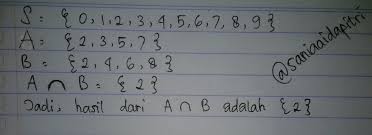 S = {0,1,2,3,4,5,6,7,8,9}
A = {2,3,5,7}
B = {2,4,6,8}
A ∩ B = {2}
Jadi, hasil dari A ∩ B adalah {2}
@saniaaidapitri